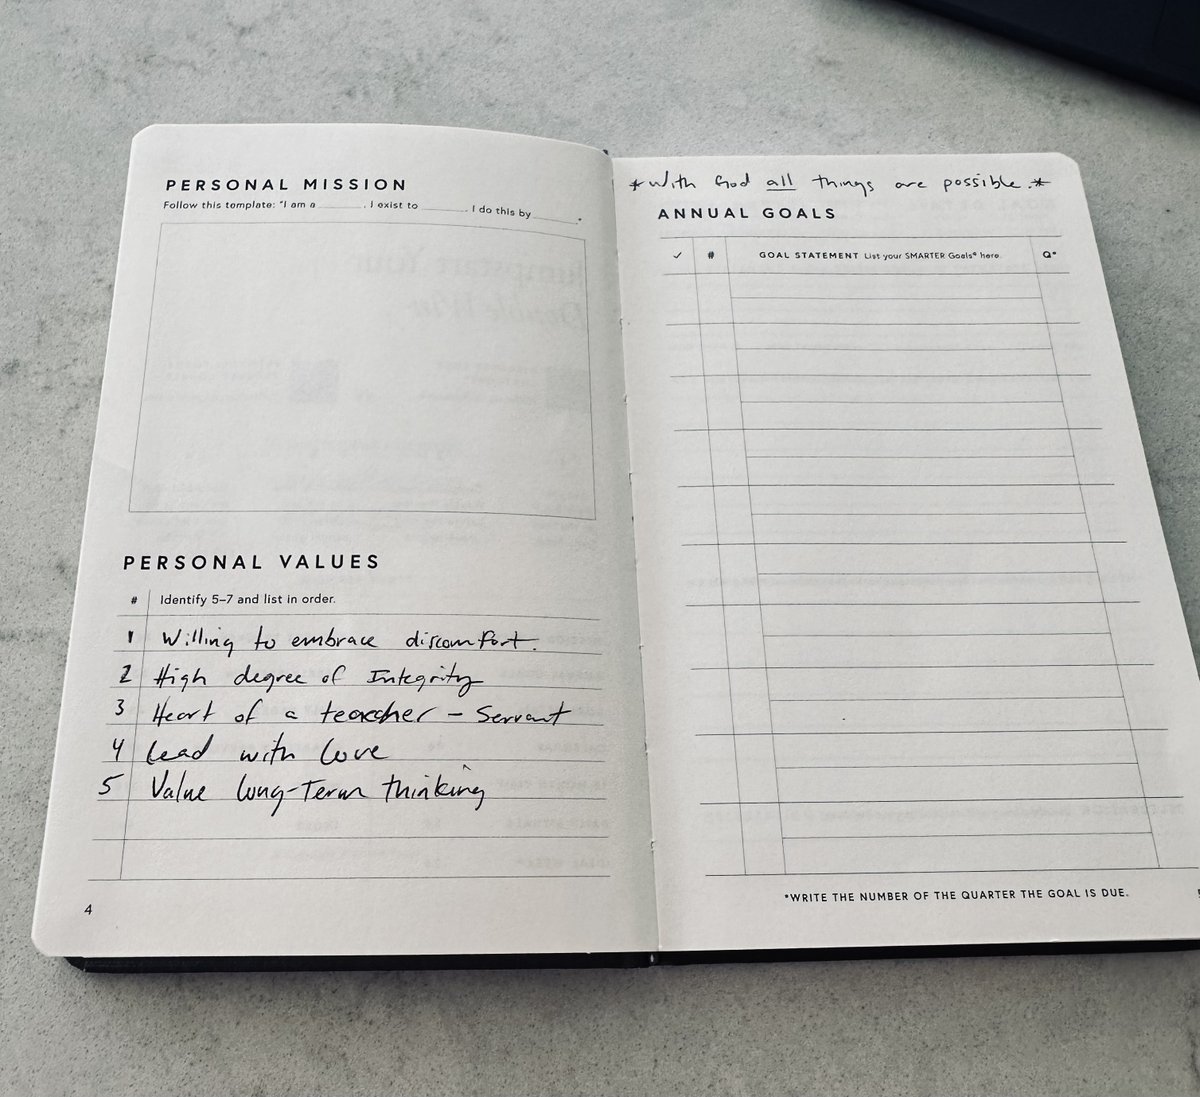 PERSONAL MISSION
Follow this template: "I am a ______. I exist to ______. I do this by ______."
PERSONAL VALUES
# Identify 5–7 and list in order.
1 Willing to embrace discomfort.
2 High degree of Integrity
3 Heart of a teacher – Servant
4 Lead with love
5 Value long-Term thinking
4
*With God all things are possible.*
ANNUAL GOALS
✓ # GOAL STATEMENT List your SMARTER Goals® here. Q*
*WRITE THE NUMBER OF THE QUARTER THE GOAL IS DUE.